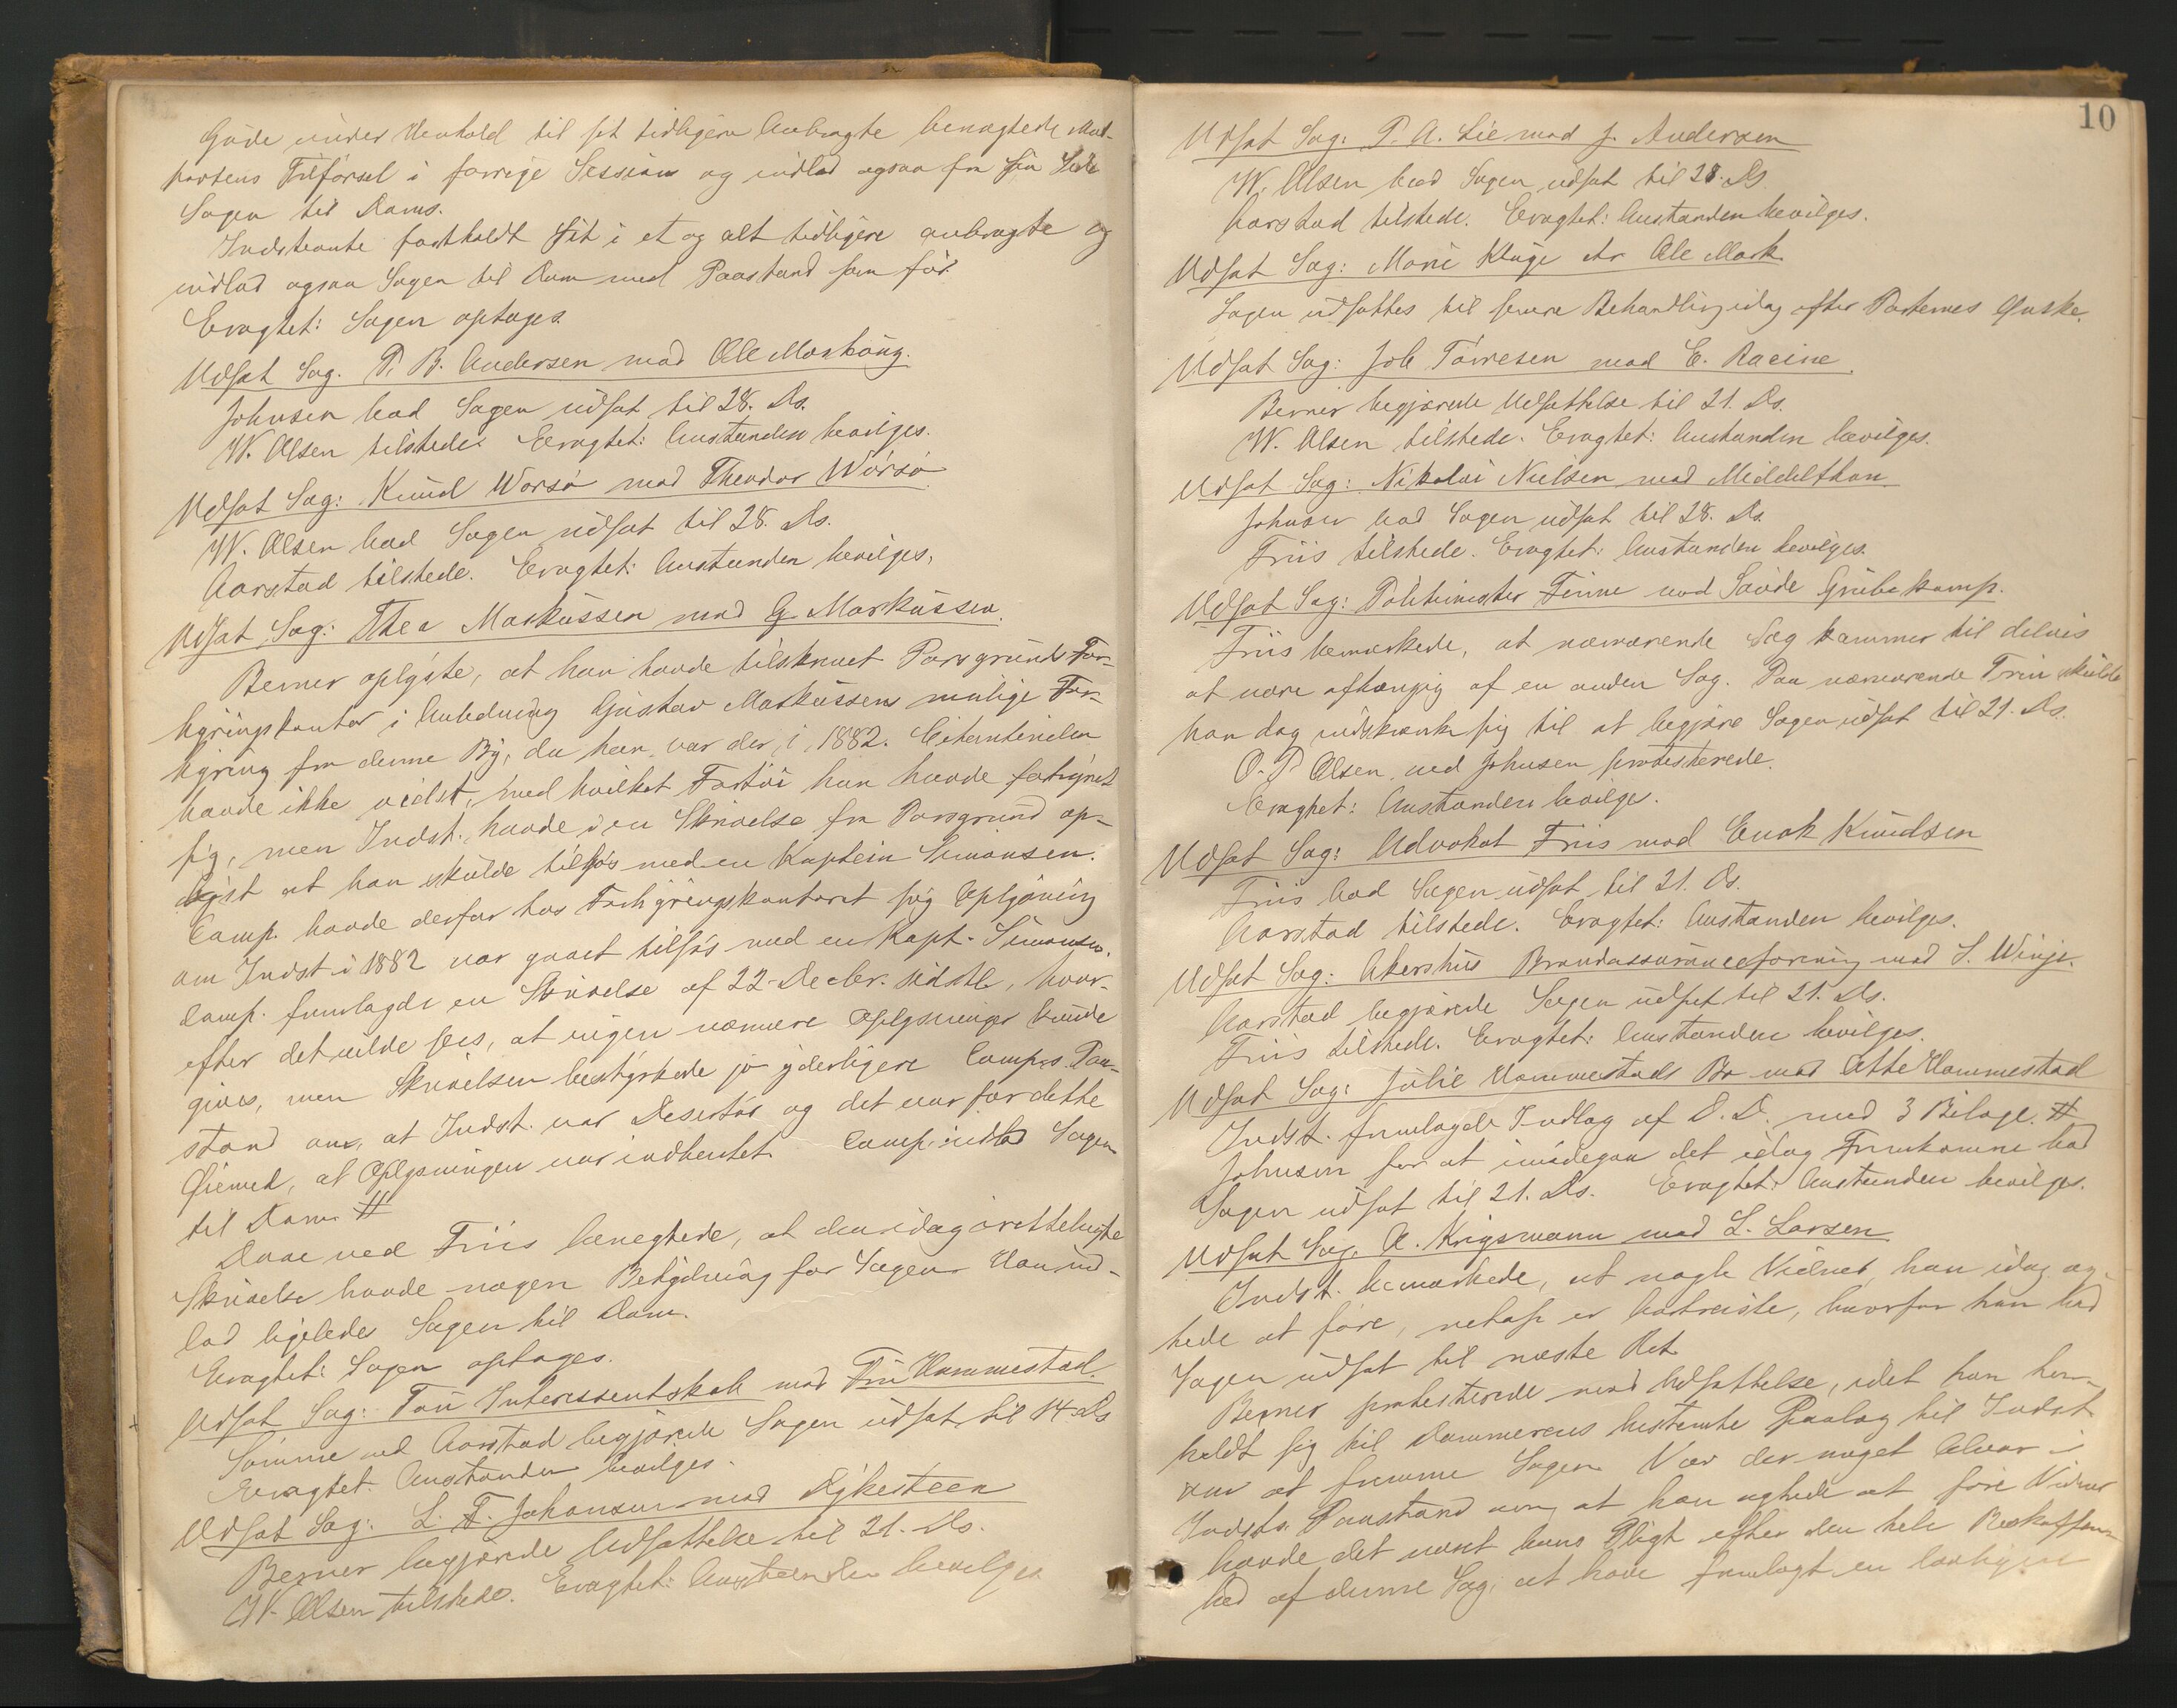 Gude under Henhold til sit tidligere Anbragte benægtede Mod-
partens Tilførsel i forrige Session og indlod ogsaa fra sin Side
Sagen til Doms.
Indstevnte fastholdt sit i et og alt tidligere anbragte og
indlod ogsaa Sagen til Dom med Paastand som før.
Eragtet: Sagen optages.
Udsat Sag. P. B. Andersen mod Ole
Johnsen bad Sagen udsat til 28. Ds.
W. Olsen tilstede. Eragtet: Anstanden bevilges.
Udsat Sag: Knud Worsö mod Theodor Wörsö
W. Olsen bad Sagen udsat til 28. Ds.
Aarstad tilstede. Eragtet: Anstanden bevilges.
Udsat Sag: Thea Markussen mod G. Markussen.
Berner oplyste, at han havde tilskrevet Porsgrunds For-
hyringskontor i Anledning Gustav Markussens mulige For-
hyring fra denne By, da han var der i 1882. Citantinden
havde ikke vidst, med hvilket Fartöi han havde forhyret
sig, men Indst. havde i en Skrivelse fra Porsgrund op-
lyst at han skulde tilsøs med en Kaptein Simonsen.
Comp. havde derfor hos Forhyringskontoret søgt Oplysning
om Indst. i 1882 var gaaet tilsøs med en Kapt. Simonsen.
Comp. fremlagde en Skrivelse af 22. Decbr. sidstl., hvor-
efter det vilde sees, at ingen nærmere Oplysninger kunde
gives, men Skrivelsen bestyrkede jo yderligere Comps. Paa-
stand om, at Indst. var Desertør og det var for dette
Øiemed, at Oplysningen var indhentet. Comp. indlod Sagen
til Dom. #
Daae ved Friis benegtede, at den idag irettelagte
Skrivelse havde nogen Betydning for Sagen. Han ind-
lod ligeledes Sagen til Dom.
Eragtet: Sagen optages.
Udsat Sag: Tou Interessentskab mod Fru Hommestad.
Sömme ved Aarstad begjærede Sagen udsat til 14. Ds.
Eragtet: Anstanden bevilges.
Udsat Sag: L. F. Johansen mod Dykesteen
Berner begjærede Udsættelse til 21. Ds.
W. Olsen tilstede. Eragtet: Anstanden bevilges
10
Udsat Sag: P. A. Lie mod J. Andersen
W. Olsen bad Sagen udsat til 28. Ds.
Aarstad tilstede. Eragtet: Anstanden bevilges.
Udsat Sag: Marie Kluge Ole Mork.
Sagen udsattes til senere Behandling idag efter Parternes Ønske.
Udsat Sag: Job Törresen mod E. Racine.
Berner begjærede Udsættelse til 21. Ds.
W. Olsen tilstede. Eragtet: Anstanden bevilges.
Udsat Sag: Nikolai Nielsen mod Middelthon.
Johnsen bad Sagen udsat til 28. Ds.
Friis tilstede. Eragtet: Anstanden bevilges.
Udsat Sag: Politimester Finne mod Grubekamp.
Friis bemærkede, at nærværende Sag kommer til delvis
at være afhængig af en anden Sag. Paa nærværende Trin skulde
han dog indskrænke sig til at begjære Sagen udsat til 21. Ds.
O. P. Olsen ved Johnsen protesterede.
Eragtet: Anstanden bevilges.
Udsat Sag: Advokat Friis mod Enok Knudsen
Friis bad Sagen udsat til 21. Ds.
Aarstad tilstede. Eragtet: Anstanden bevilges.
Udsat Sag: Akershus Brandassuranceforening mod S. Winje.
Aarstad begjærede Sagen udsat til 21. Ds.
Friis tilstede. Eragtet: Anstanden bevilges.
Udsat Sag: Julie Hommestads Bo mod Hommestad
Indst. fremlagde Indlæg af D. D. med 3 Bilage. #
Johnsen for at imødegaa det idag Fremkomne bad
Sagen udsat til 21. Ds. Eragtet: Anstanden bevilges.
Udsat Sag. A. Krigsmann mod L. Larsen.
Indst. bemærkede, at nogle Vidner, han idag ag-
tede at føre, netop er bortreiste, hvorfor han bad
Sagen udsat til næste Ret.
Berner protesterede mod Udsættelse, idet han hen-
holdt sig til Dommerens bestemte Paalæg til Indst.
om at fremme Sagen. Var der noget Alvor i
Indsts. Paastand om, at han agtede at føre Vidner
havde det været hans Pligt efter den hele Beskaffen-
hed af denne Sag, at have fremlagt en lovligen